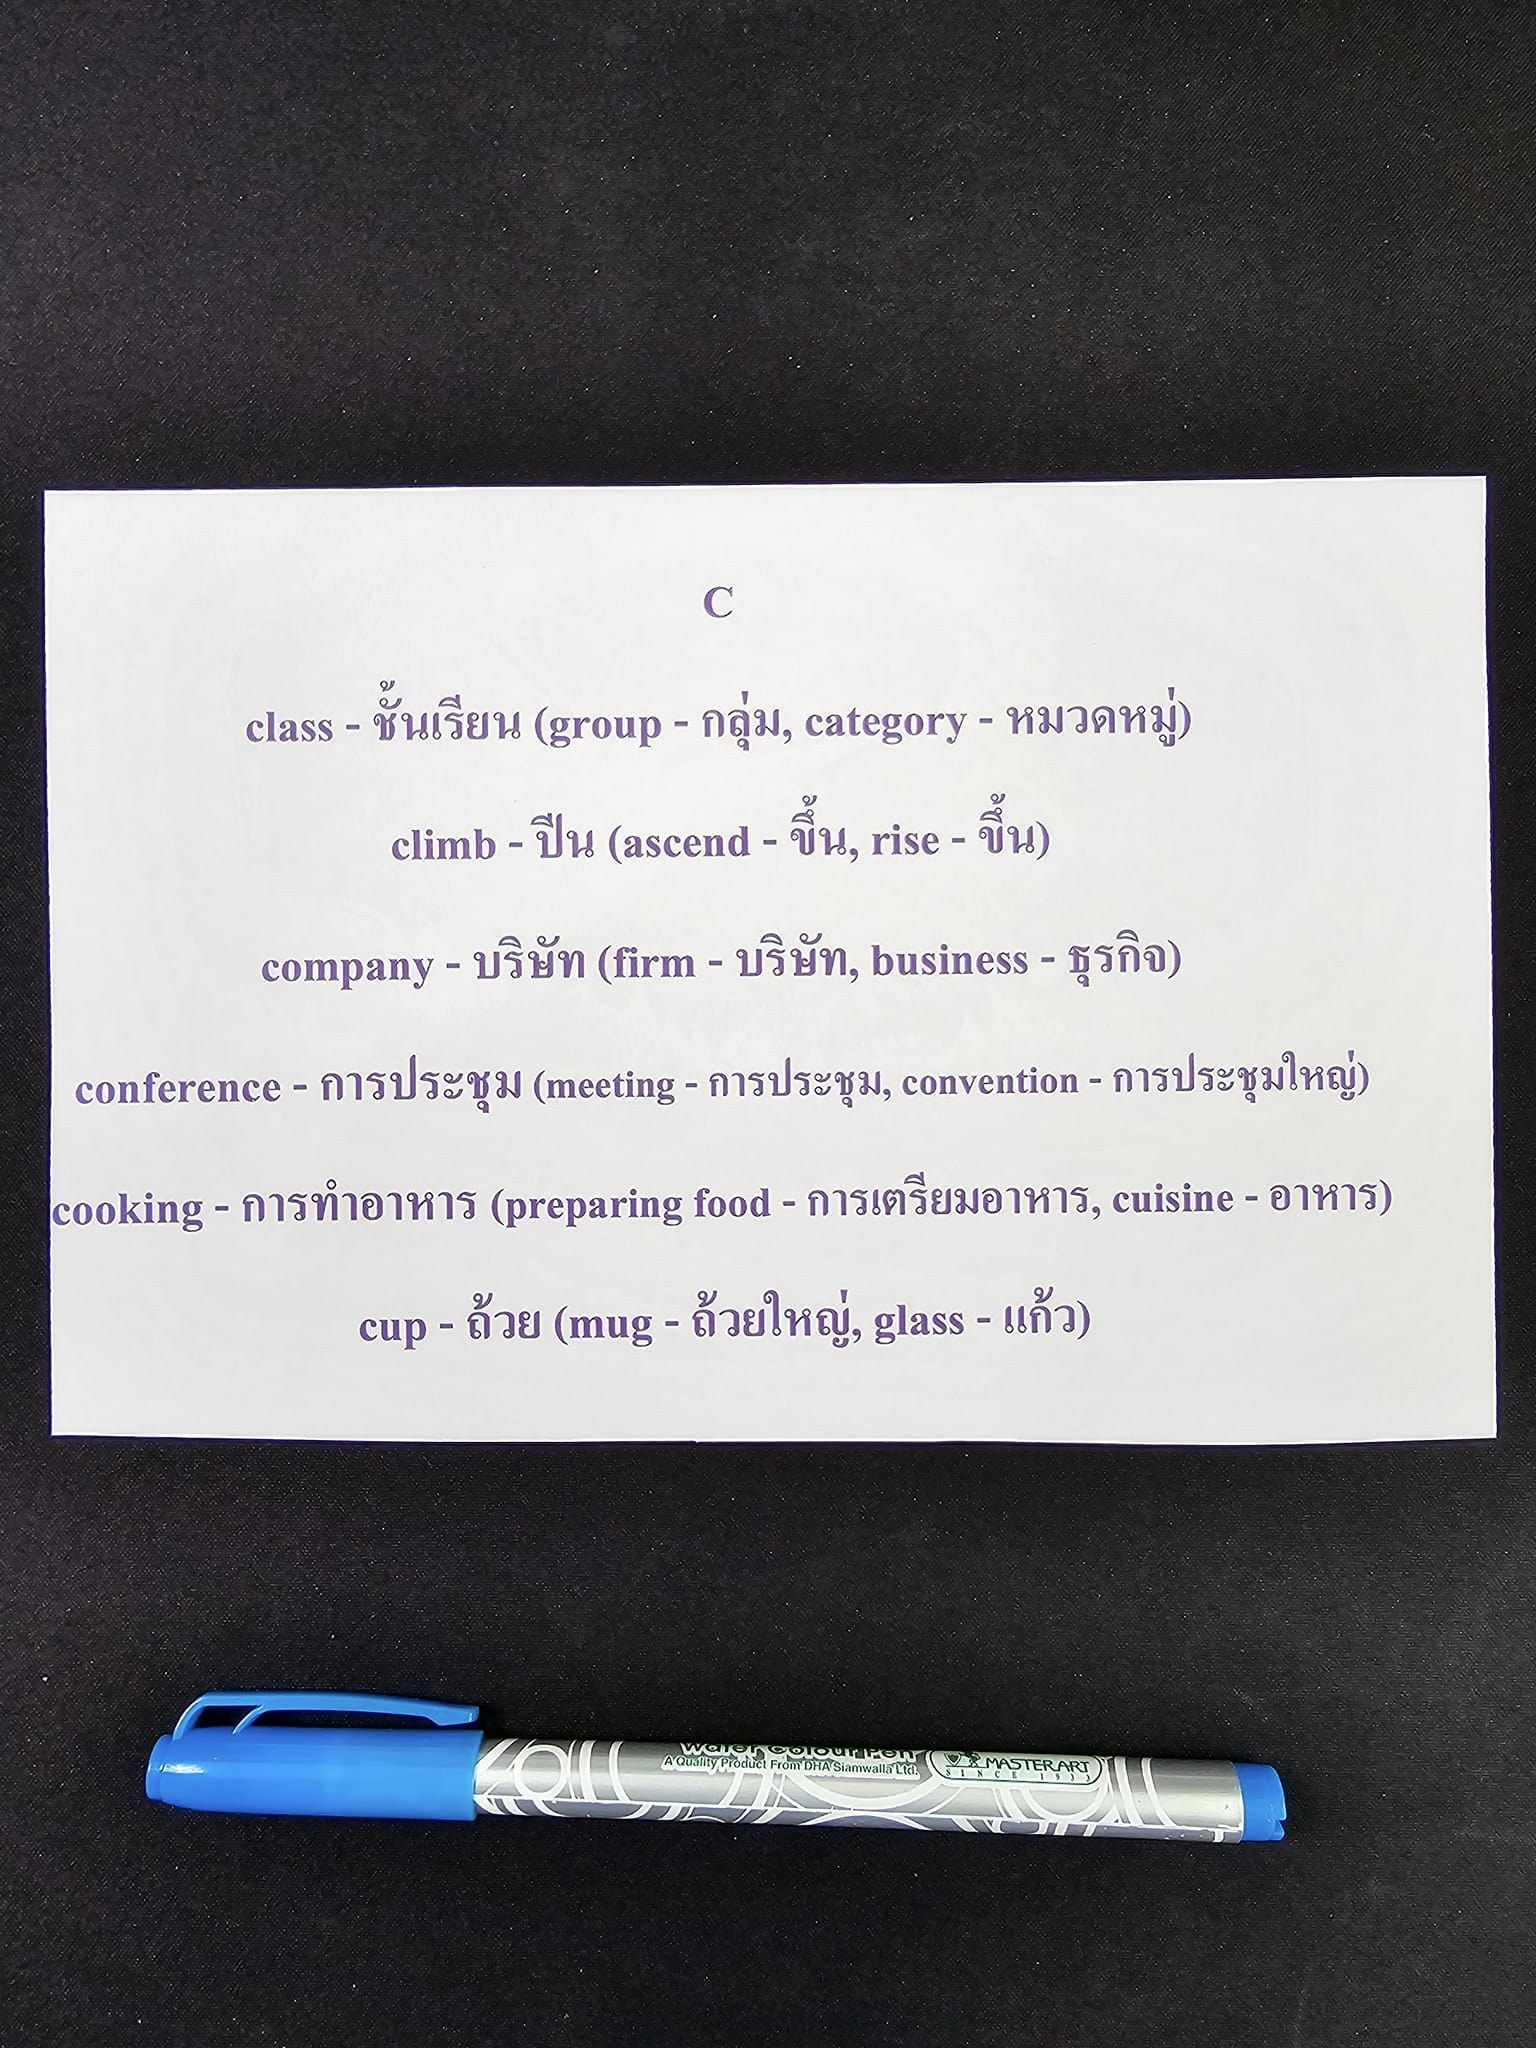 C
class - ชั้นเรียน (group - กลุ่ม, category - หมวดหมู่)
climb - ปีน (ascend - ขึ้น, rise - ขึ้น)
company - บริษัท (firm - บริษัท, business - ธุรกิจ)
conference - การประชุม (meeting - การประชุม, convention - การประชุมใหญ่)
cooking - การทำอาหาร (preparing food - การเตรียมอาหาร, cuisine - อาหาร)
cup - ถ้วย (mug - ถ้วยใหญ่, glass - แก้ว)
Water Colour Pen
A Quality Product From DHA Siamwalla Ltd.
MASTERART
SINCE 1933